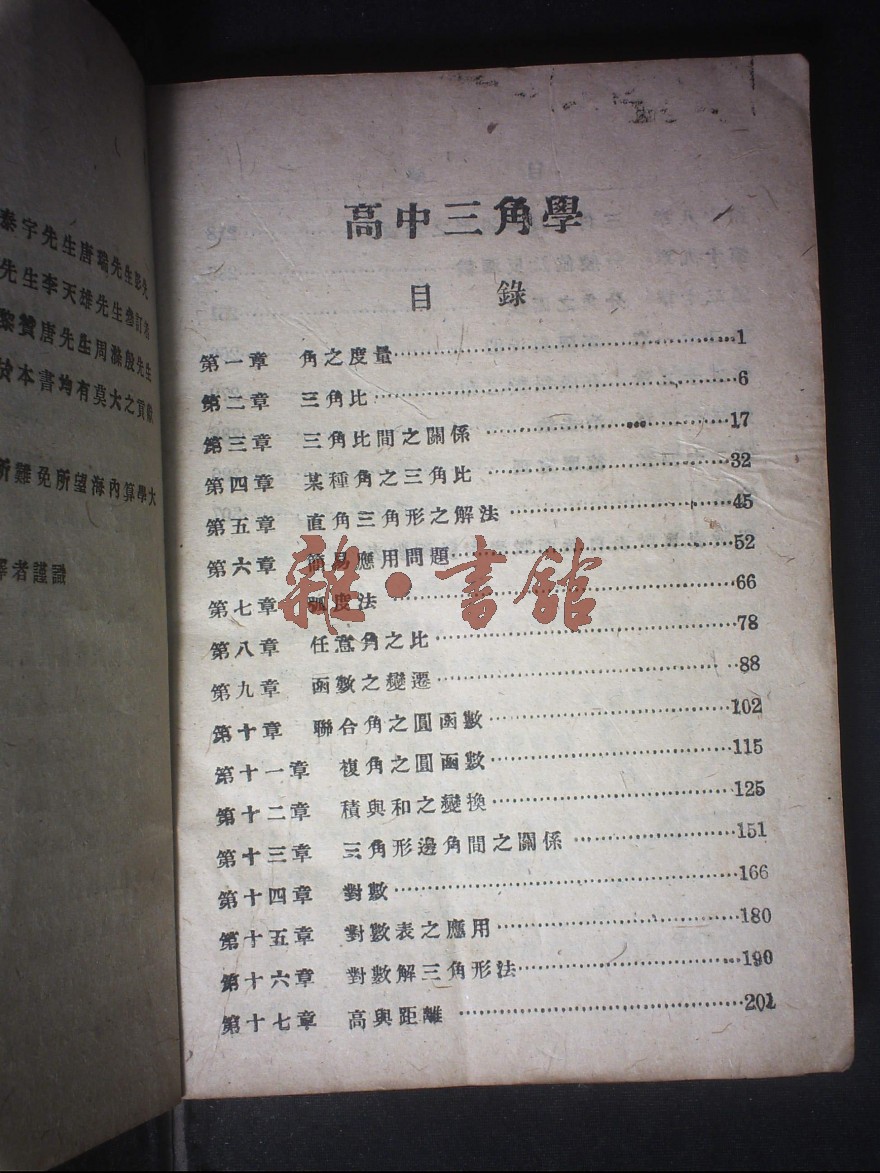 高中三角學
目錄
第一章 角之度量…………1
第二章 三角比…………6
第三章 三角比間之關係…………17
第四章 某種角之三角比…………32
第五章 直角三角形之解法…………45
第六章 簡易應用問題…………52
第七章 弧度法…………66
第八章 任意角之比…………78
第九章 函數之變遷…………88
第十章 聯合角之圓函數…………102
第十一章 複角之圓函數…………115
第十二章 積與和之變換…………125
第十三章 三角形邊角間之關係…………151
第十四章 對數…………166
第十五章 對數表之應用…………180
第十六章 對數解三角形法…………190
第十七章 高與距離…………201
雜·書館
泰宇先生唐瑞先生
先生李天雄先生
黎贊唐先生周滌殷先生
於本書均有莫大之貢獻
所難免所望海內算學大
譯者謹識